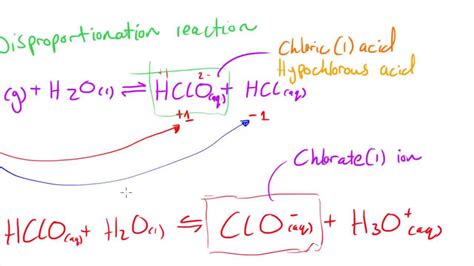 Disproportionation reaction
Chloric(I) acid
Hypochlorous acid
+1 2-
(g) + H2O(l) ⇌ HClO(aq) + HCl(aq)
+1 -1
Chlorate(I) ion
HClO(aq) + H2O(l) ⇌ ClO-(aq) + H3O+(aq)